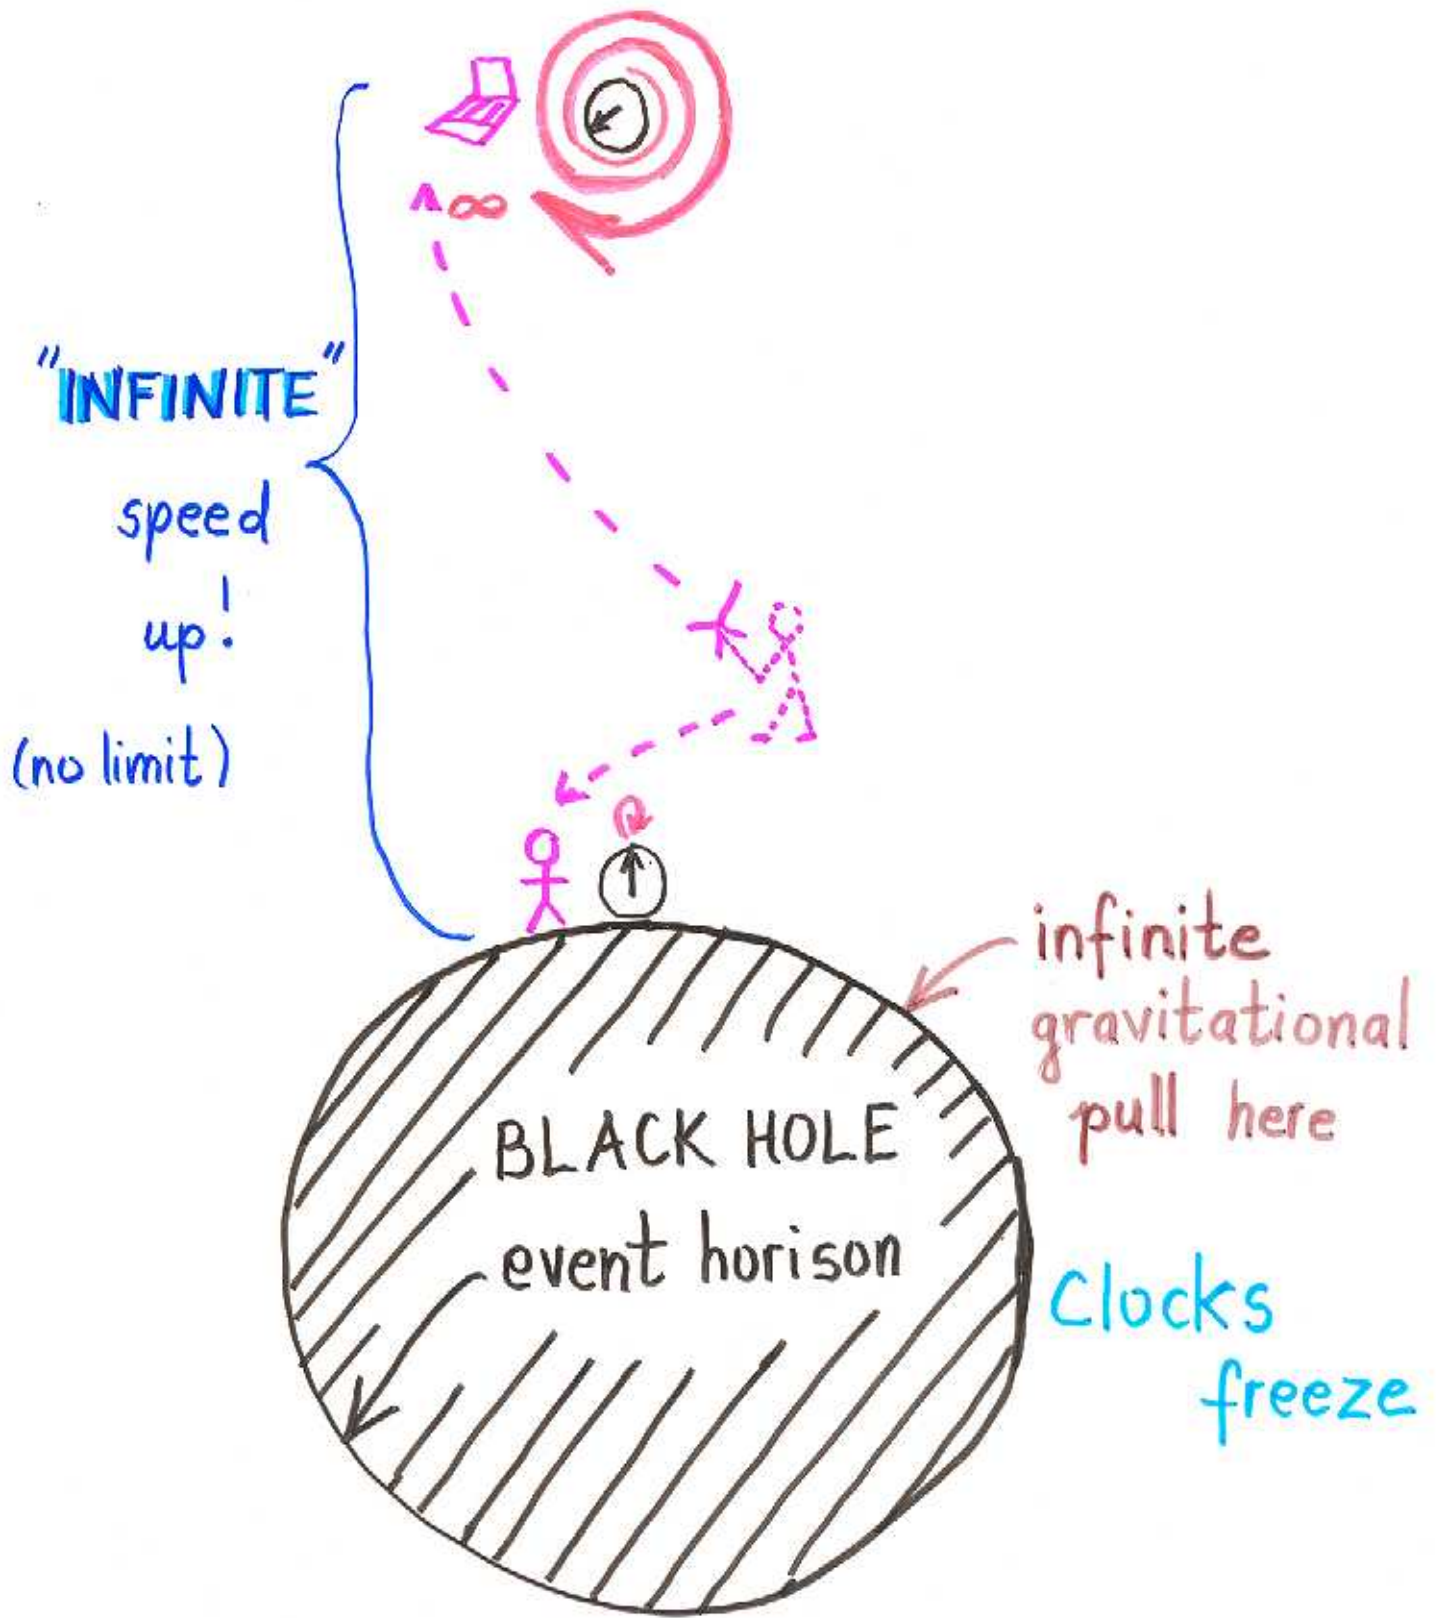 ∞
"INFINITE"
speed
up!
(no limit)
infinite
gravitational
pull here
BLACK HOLE
event horison
Clocks
freeze